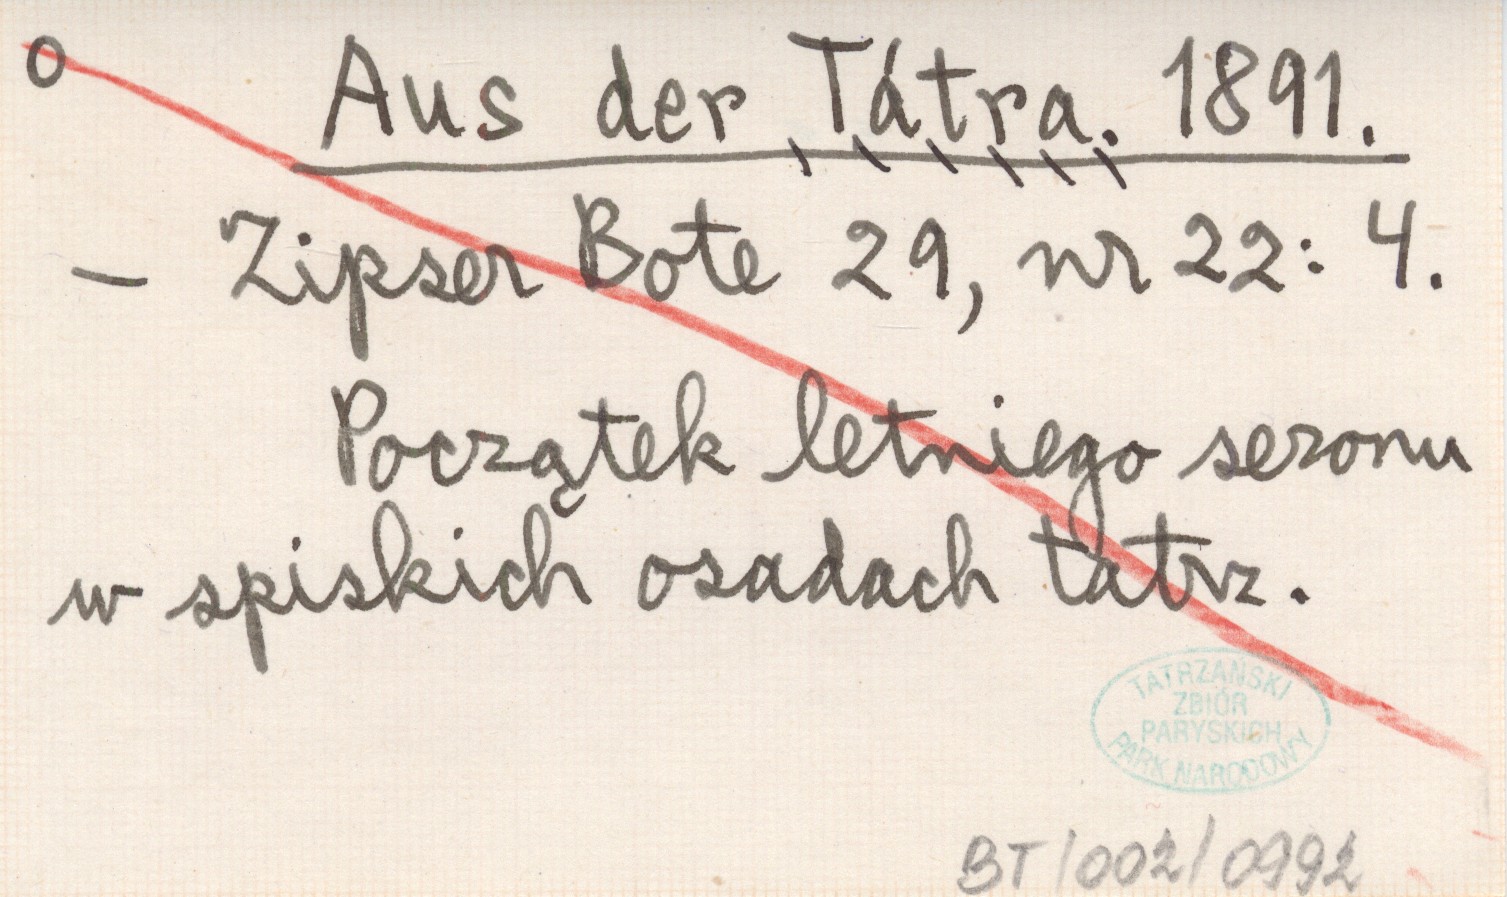 o Aus der Tátra. 1891.
– Zipser Bote 29, nr 22: 4.
Początek letniego sezonu
w spiskich osadach tatrz.
TATRZAŃSKI
ZBIÓR
PARYSKICH
PARK NARODOWY
BT/002/0992